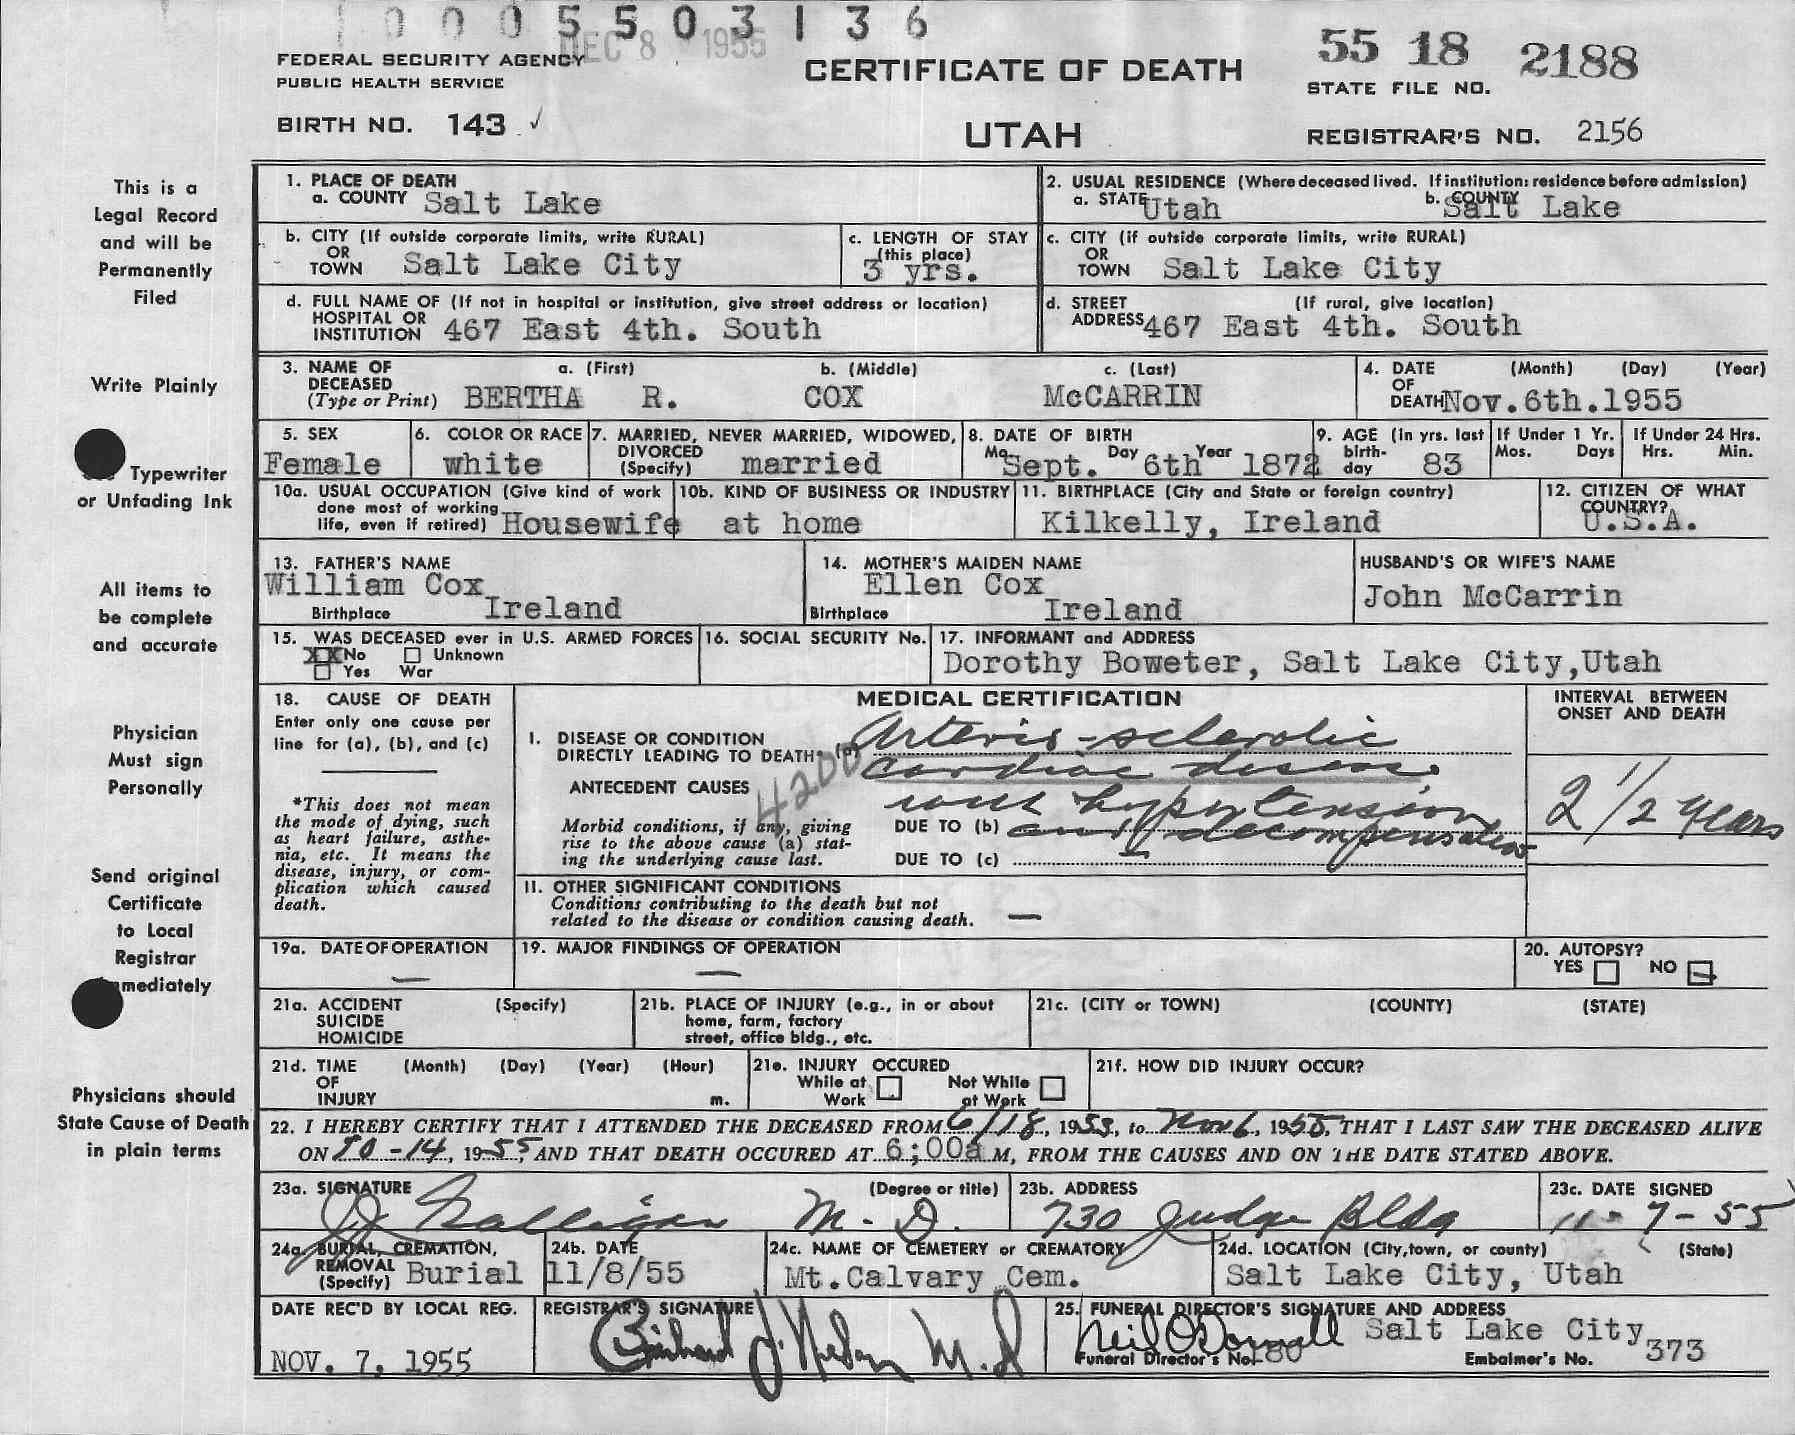 0 0 0 5 5 0 3 1 3 6
DEC 8 1955
FEDERAL SECURITY AGENCY
PUBLIC HEALTH SERVICE
BIRTH NO. 143 ✓
CERTIFICATE OF DEATH
UTAH
55 18 2188
STATE FILE NO.
REGISTRAR'S NO. 2156
This is a
Legal Record
and will be
Permanently
Filed
Write Plainly
Typewriter
or Unfading Ink
All items to
be complete
and accurate
Physician
Must sign
Personally
Send original
Certificate
to Local
Registrar
mmediately
Physicians should
State Cause of Death
in plain terms
1. PLACE OF DEATH
a. COUNTY Salt Lake
2. USUAL RESIDENCE (Where deceased lived. If institution: residence before admission)
a. STATE Utah b. COUNTY Salt Lake
b. CITY (If outside corporate limits, write RURAL)
OR
TOWN Salt Lake City
c. LENGTH OF STAY
(this place)
3 yrs.
c. CITY (if outside corporate limits, write RURAL)
OR
TOWN Salt Lake City
d. FULL NAME OF (If not in hospital or institution, give street address or location)
HOSPITAL OR
INSTITUTION 467 East 4th. South
d. STREET (If rural, give location)
ADDRESS 467 East 4th. South
3. NAME OF DECEASED a. (First) b. (Middle) c. (Last)
(Type or Print) BERTHA R. COX McCARRIN
4. DATE (Month) (Day) (Year)
OF
DEATH Nov.6th.1955
5. SEX
Female
6. COLOR OR RACE
white
7. MARRIED, NEVER MARRIED, WIDOWED,
DIVORCED
(Specify) married
8. DATE OF BIRTH
Mo. Sept. Day 6th Year 1872
9. AGE (in yrs. last
birth-
day 83
If Under 1 Yr.
Mos. Days
If Under 24 Hrs.
Hrs. Min.
10a. USUAL OCCUPATION (Give kind of work
done most of working
life, even if retired) Housewife
10b. KIND OF BUSINESS OR INDUSTRY
at home
11. BIRTHPLACE (City and State or foreign country)
Kilkelly, Ireland
12. CITIZEN OF WHAT
COUNTRY?
U.S.A.
13. FATHER'S NAME
William Cox
Birthplace Ireland
14. MOTHER'S MAIDEN NAME
Ellen Cox
Birthplace Ireland
HUSBAND'S OR WIFE'S NAME
John McCarrin
15. WAS DECEASED ever in U.S. ARMED FORCES
XX No Unknown
Yes War
16. SOCIAL SECURITY No.
17. INFORMANT and ADDRESS
Dorothy Boweter, Salt Lake City,Utah
18. CAUSE OF DEATH
Enter only one cause per
line for (a), (b), and (c)
*This does not mean
the mode of dying, such
as heart failure, asthe-
nia, etc. It means the
disease, injury, or com-
plication which caused
death.
MEDICAL CERTIFICATION
I. DISEASE OR CONDITION
DIRECTLY LEADING TO DEATH* (a) Arterio-sclerotic
cardiac disease
ANTECEDENT CAUSES
4200
with hypertension
Morbid conditions, if any, giving
rise to the above cause (a) stat-
ing the underlying cause last.
DUE TO (b) and decompensation
DUE TO (c)
INTERVAL BETWEEN
ONSET AND DEATH
2 1/2 years
II. OTHER SIGNIFICANT CONDITIONS
Conditions contributing to the death but not
related to the disease or condition causing death. —
19a. DATE OF OPERATION
—
19. MAJOR FINDINGS OF OPERATION
—
20. AUTOPSY?
YES NO
21a. ACCIDENT (Specify)
SUICIDE
HOMICIDE
21b. PLACE OF INJURY (e.g., in or about
home, farm, factory
street, office bldg., etc.
21c. (CITY or TOWN) (COUNTY) (STATE)
21d. TIME (Month) (Day) (Year) (Hour)
OF
INJURY m.
21e. INJURY OCCURED
While at Work Not While at Work
21f. HOW DID INJURY OCCUR?
22. I HEREBY CERTIFY THAT I ATTENDED THE DECEASED FROM 6/18, 1953, to Nov 6, 1955, THAT I LAST SAW THE DECEASED ALIVE
ON 10-14, 1955, AND THAT DEATH OCCURED AT 6;00a M, FROM THE CAUSES AND ON THE DATE STATED ABOVE.
23a. SIGNATURE (Degree or title)
Galligan M.D.
23b. ADDRESS
730 Judge Bldg
23c. DATE SIGNED
11-7-55
24a. BURIAL, CREMATION,
REMOVAL
(Specify) Burial
24b. DATE
11/8/55
24c. NAME OF CEMETERY or CREMATORY
Mt.Calvary Cem.
24d. LOCATION (City,town, or county) (State)
Salt Lake City, Utah
DATE REC'D BY LOCAL REG.
NOV. 7, 1955
REGISTRAR'S SIGNATURE
M.D
25. FUNERAL DIRECTOR'S SIGNATURE AND ADDRESS
Neil O'Donnell Salt Lake City
Funeral Director's No. 180 Embalmer's No. 373